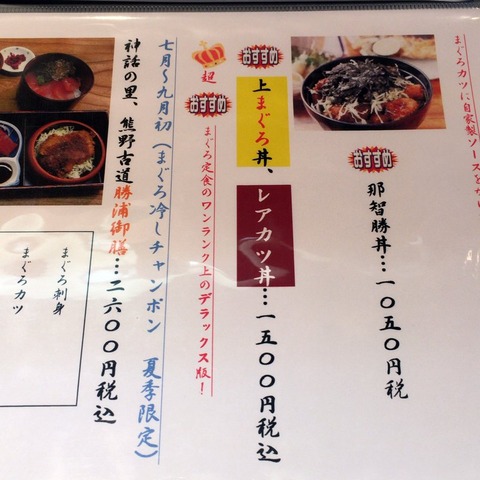 まぐろカツに自家製ソースを
おすすめ
那智勝丼…一〇五〇円税
おすすめ
上まぐろ丼、レアカツ丼…一五〇〇円税込
超おすすめ
まぐろ定食のワンランク上のデラックス版！
七月～九月初（まぐろ冷しチャンポン 夏季限定）
神話の里、熊野古道勝浦御膳…二六〇〇円税込
まぐろ刺身
まぐろカツ